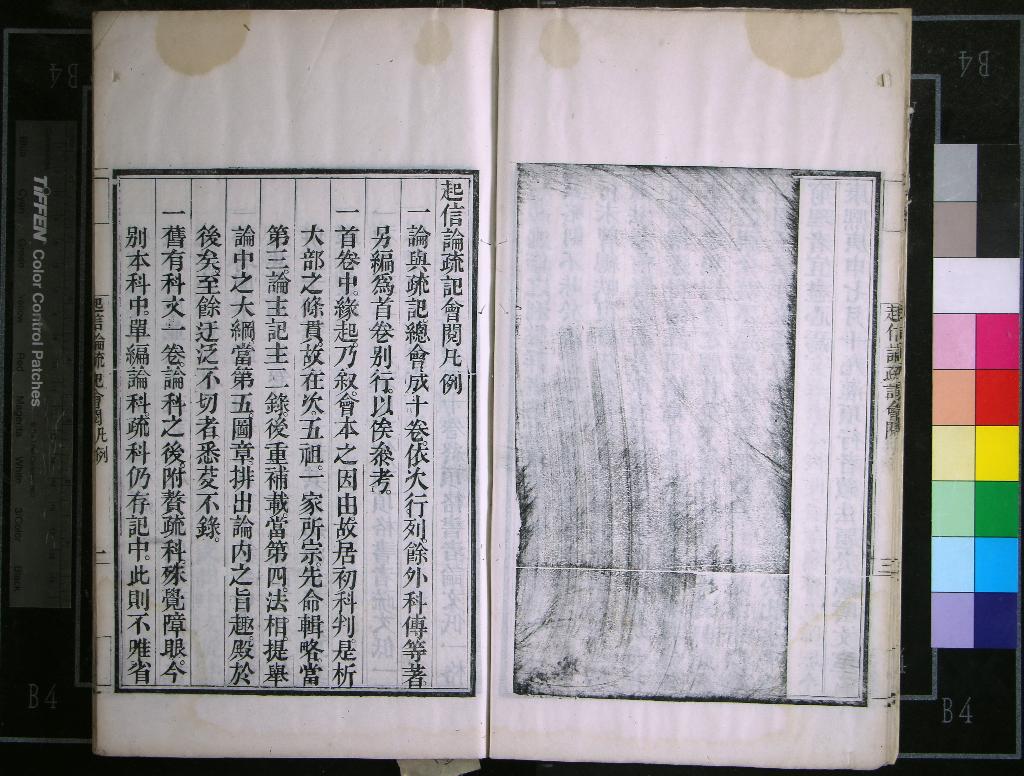 起信論疏記會閱凡例
一論與疏記總會成十卷依次行列餘外科傳等著
另編爲首卷別行以俟叅考
一首卷中緣起乃叙會本之因由故居初科判是析
大部之條貫故在次五祖一家所宗先命輯略當
第三論主記主二錄後重補載當第四法相提舉
論中之大綱當第五圖章排出論內之旨趣殿於
後矣至餘迂泛不切者悉芟不錄
一舊有科文一卷論科之後附贅疏科殊覺障眼今
別本科中單編論科疏科仍存記中此則不唯省
起信論疏記會閱凡例
一
起信論疏記會閱
三
TIFFEN Color Control Patches
Blue
Cyan
Green
Yellow
Red
Magenta
White
3/Color
Black
B4
B4
B4
B4